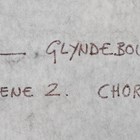 — GLYNDEBOU
ENE 2. CHOR